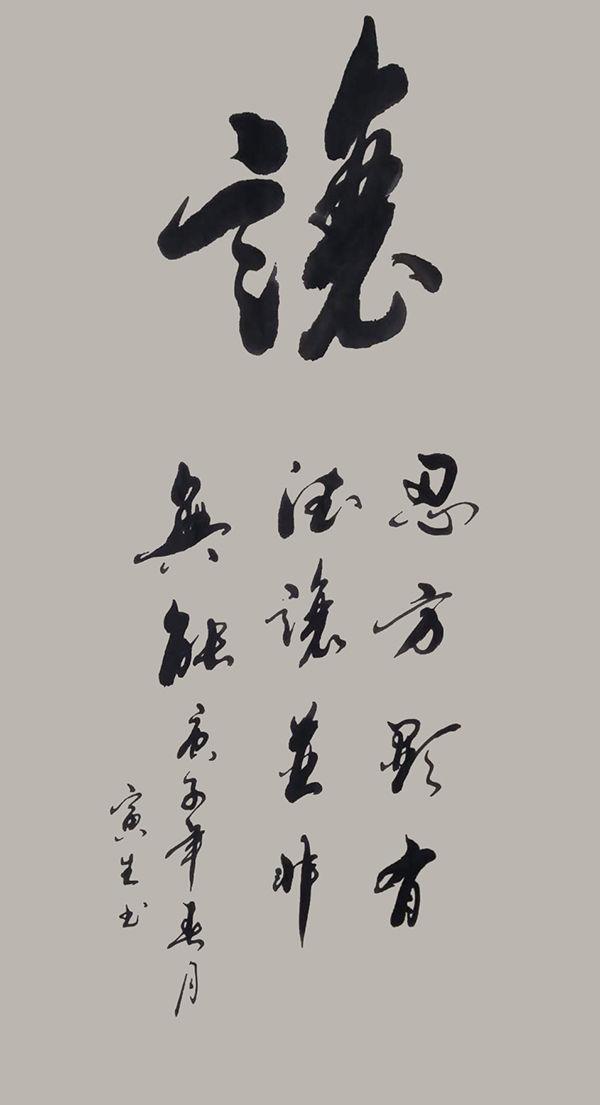 讓
忍方顯有
德讓並非
無能庚子年春月
寅生书